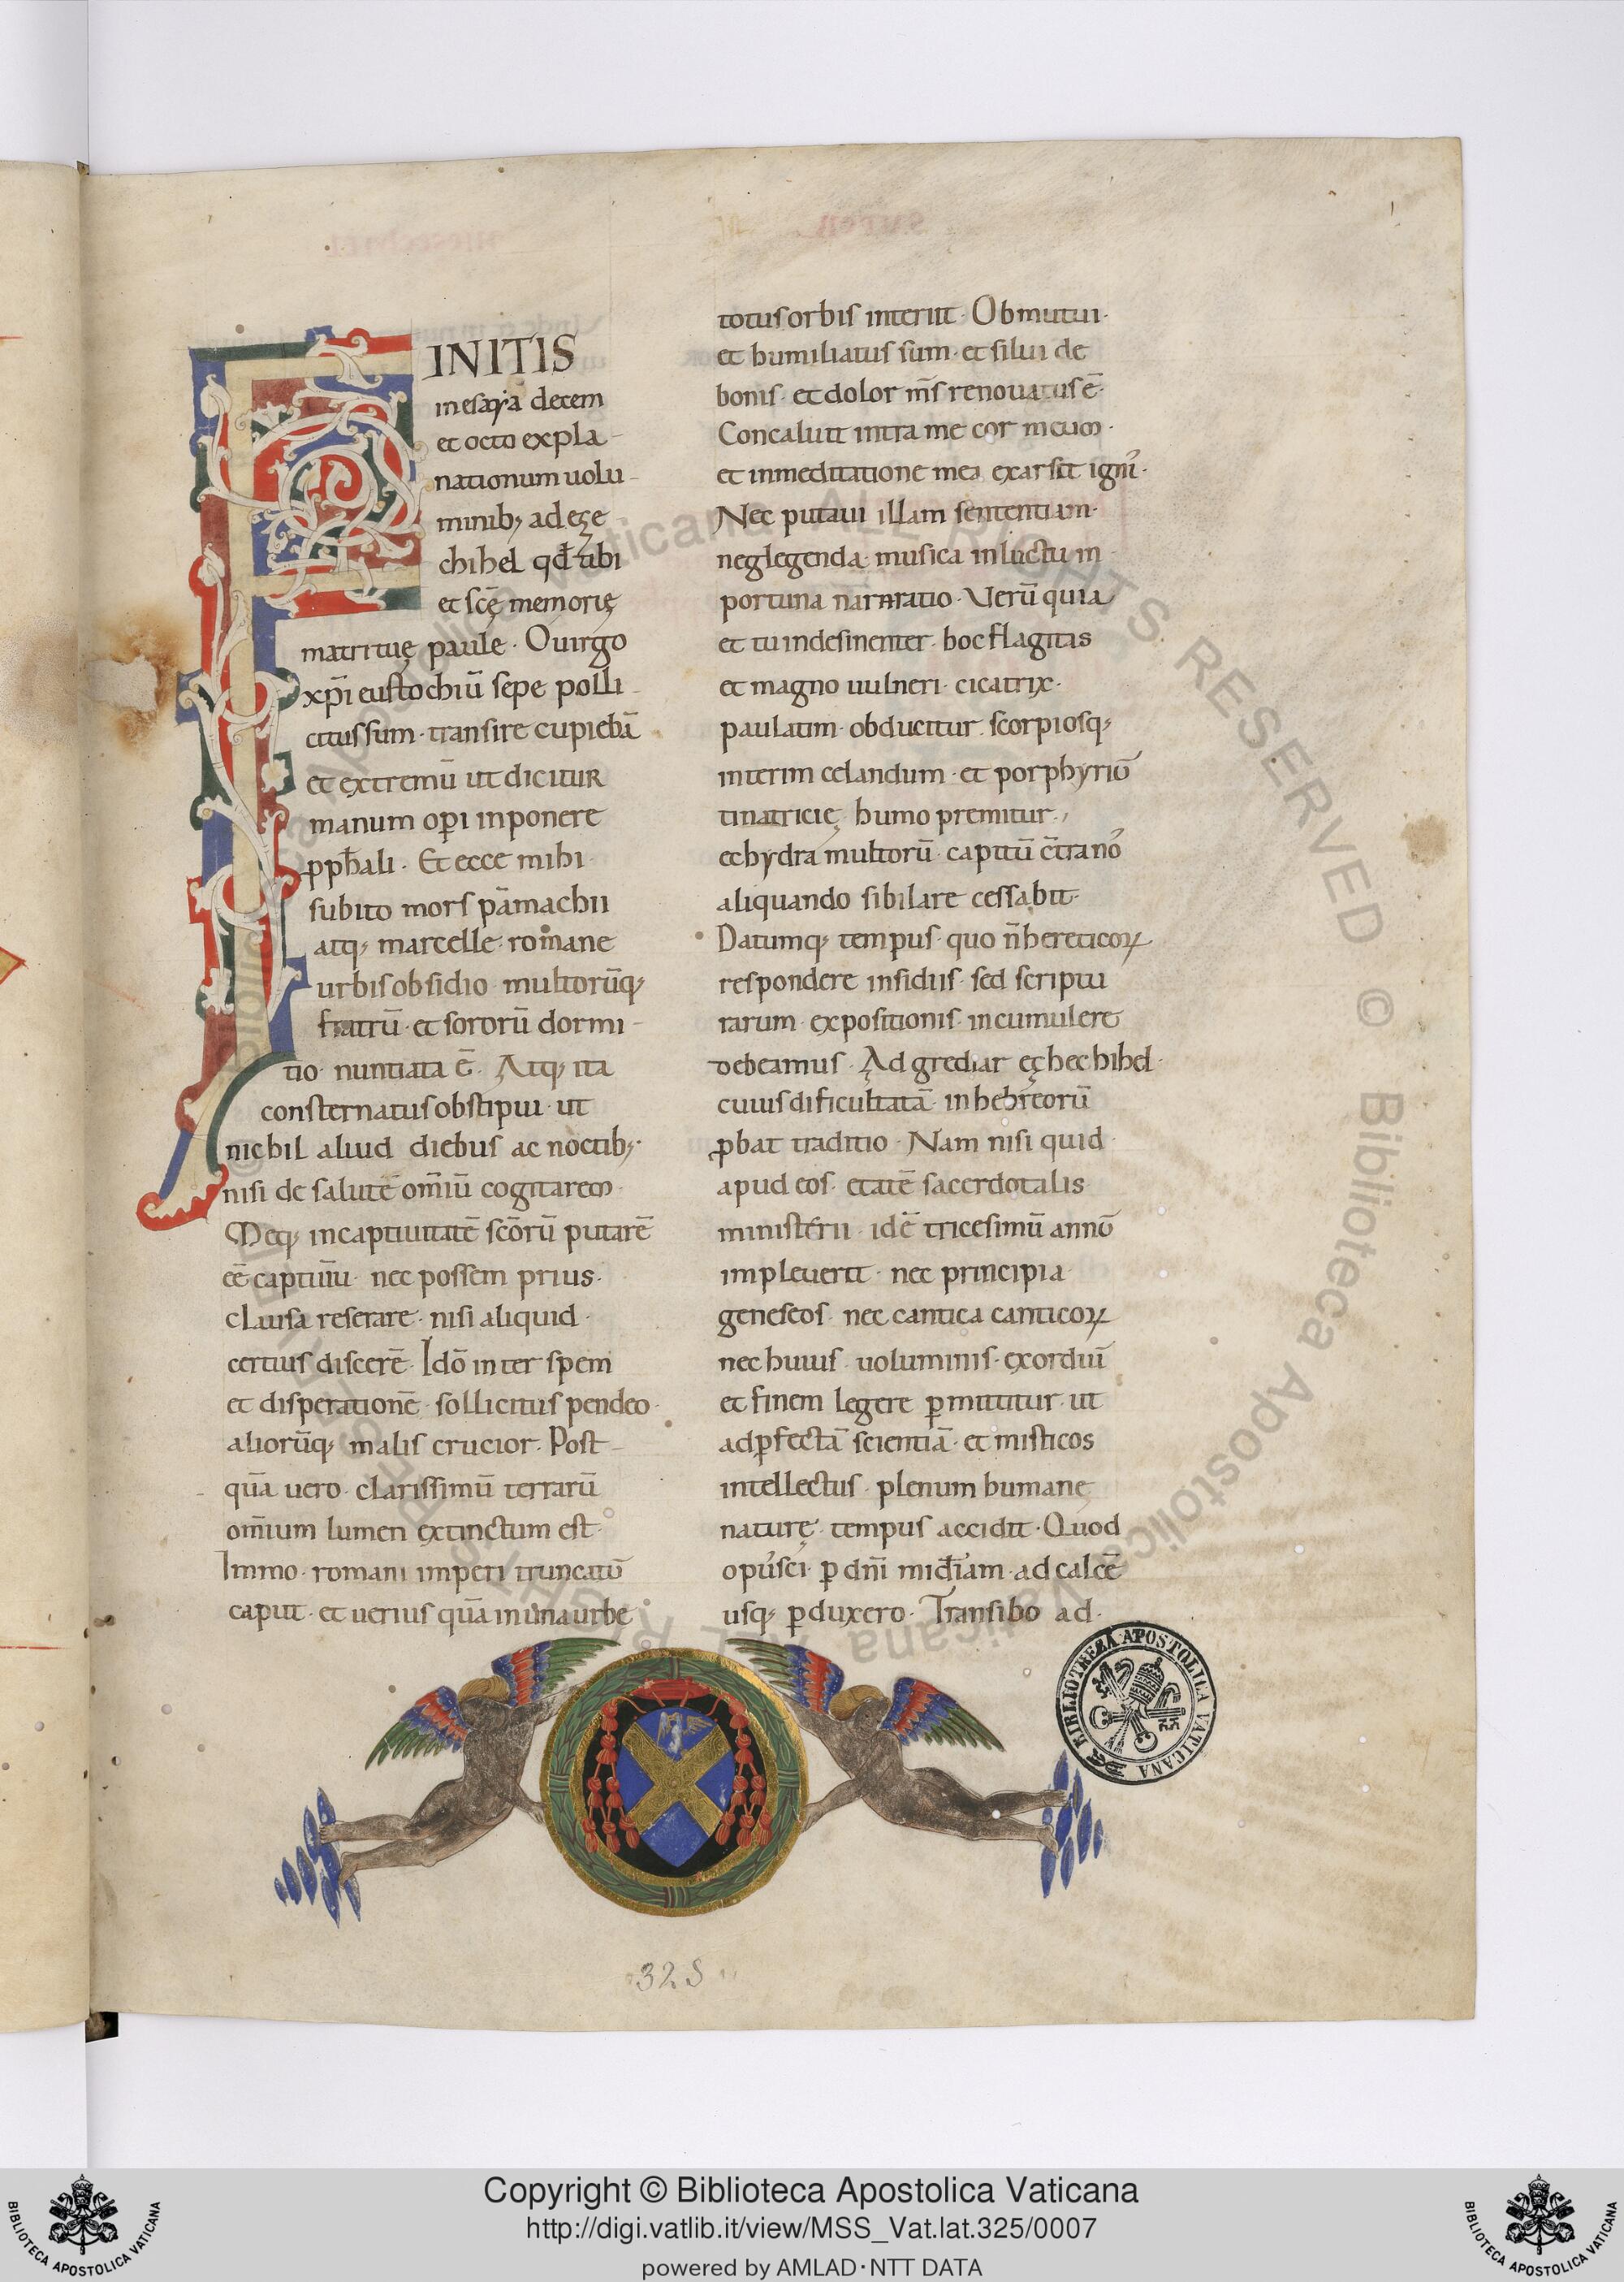 FINITIS
in esaya decem
et octo expla-
nationum uolu-
minib; ad eze
chihel qđ tibi
et scę memorię
matri tuę paule · O uirgo
xp̄i eustochiū sepe polli-
citus sum · transire cupiebā
et extremū ut dicitur
manum oꝑi inponere
ꝓpħali · Et ecce mihi
subito mors pāmachii
atq; marcelle · romane
urbis obsidio · multorūq;
fratrū · et sororū dormi-
tio · nuntiata ē · Atq; ita
consternatus obstipui · ut
nichil aliud diebus ac noctib; ·
nisi de salute om̄iū cogitarem ·
Meq; in captiuitatē scōrū putarē
eē captiuū · nec possem prius ·
clausa reserare · nisi aliquid ·
certius discerē · Idō inter spem
et disperationē · sollicitus pendeo ·
aliorūq; malis crucior · Post-
quā uero · clarissimū terrarū
om̄ium lumen extinctum est ·
Immo · romani imperi truncatū
caput · et uerius quā in una urbe
totus orbis interiit · Obmutui ·
et humiliatus sum · et silui de
bonis · et dolor m̄s renouatus ē ·
Concaluit intra me cor meum ·
et in meditatione mea exarsit igni᾽ ·
Nec putaui illam sententiam ·
neglegenda · musica in luctu in
portuna narratio · Uerū quia
et tu indesinenter · hoc flagitas
et magno uulneri · cicatrix ·
paulatim · obducitur · scorpiosq;
interim celandum · et porphyriū
tinatricię · humo premitur ·
et hydra multorū · capitū c̄tra no᾽
aliquando sibilare cessabit ·
Datumq; tempus · quo n̄ hereticoꝝ
respondere insidiis · sed scriptu
rarum · expositionis · incumulere
debeamus · Ad grediar ęchechihel ·
cuius dificultatā · in hebreorū
ꝓbat traditio · Nam nisi quid ·
apud eos · etatē sacerdotalis
ministerii · idē tricesimū annū
impleuerit · nec principia
geneseos · nec cantica canticoꝝ
nec huius · uoluminis · exordiū
et finem legere ꝑmittitur · ut
ad ꝑfectā scientiā · et misticos
intellectus · plenum humane
naturę · tempus accidit · Quod
ꝑ dn̄i mid̄iam · ad calcē
usq; ꝑduxero · Transibo ad ·
BIBLIOTHECA APOSTOLICA VATICANA
325
Copyright © Biblioteca Apostolica Vaticana
http://digi.vatlib.it/view/MSS_Vat.lat.325/0007
powered by AMLAD·NTT DATA
BIBLIOTECA APOSTOLICA VATICANA
BIBLIOTECA APOSTOLICA VATICANA
© Biblioteca Apostolica Vaticana ALL RIGHTS RESERVED